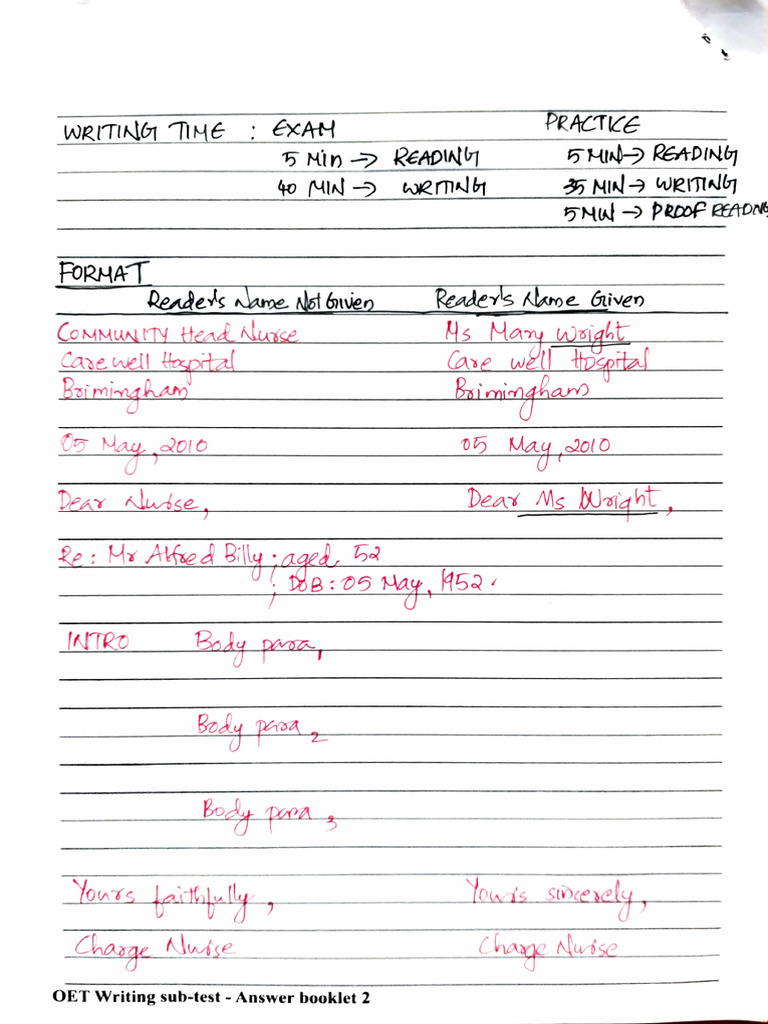 WRITING TIME : EXAM PRACTICE
5 Min → READING 5 MIN → READING
40 MIN → WRITING 35 MIN → WRITING
5 MIN → PROOF READING
FORMAT
Reader's Name Not Given Reader's Name Given
COMMUNITY Head Nurse Ms Mary Wright
Carewell Hospital Care well Hospital
Brimingham Brimingham
05 May, 2010 05 May, 2010
Dear Nurse, Dear Ms Wright,
Re : Mr Alfred Billy ; aged 52
; DOB : 05 May, 1952.
INTRO Body para 1
Body para 2
Body para 3
Yours faithfully, Yours sincerely,
Charge Nurse Charge Nurse
OET Writing sub-test - Answer booklet 2